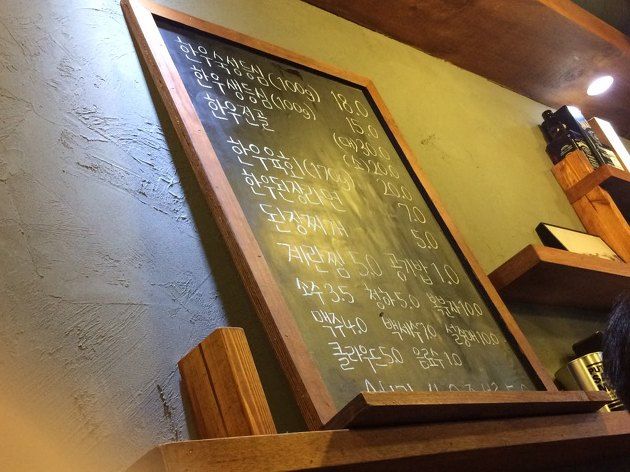 한우숙성등심(100g) 18.0
한우생등심(100g) 15.0
한우전골 (대)30.0
(소)20.0
한우육회(170g) 20.0
한우된장라면 7.0
된장찌개 5.0
계란찜 5.0 공기밥 1.0
소주 3.5 청하 5.0 복분자 10.0
맥주 4.0 백세주 7.0 설중매 10.0
클라우드 5.0 음료수 1.0